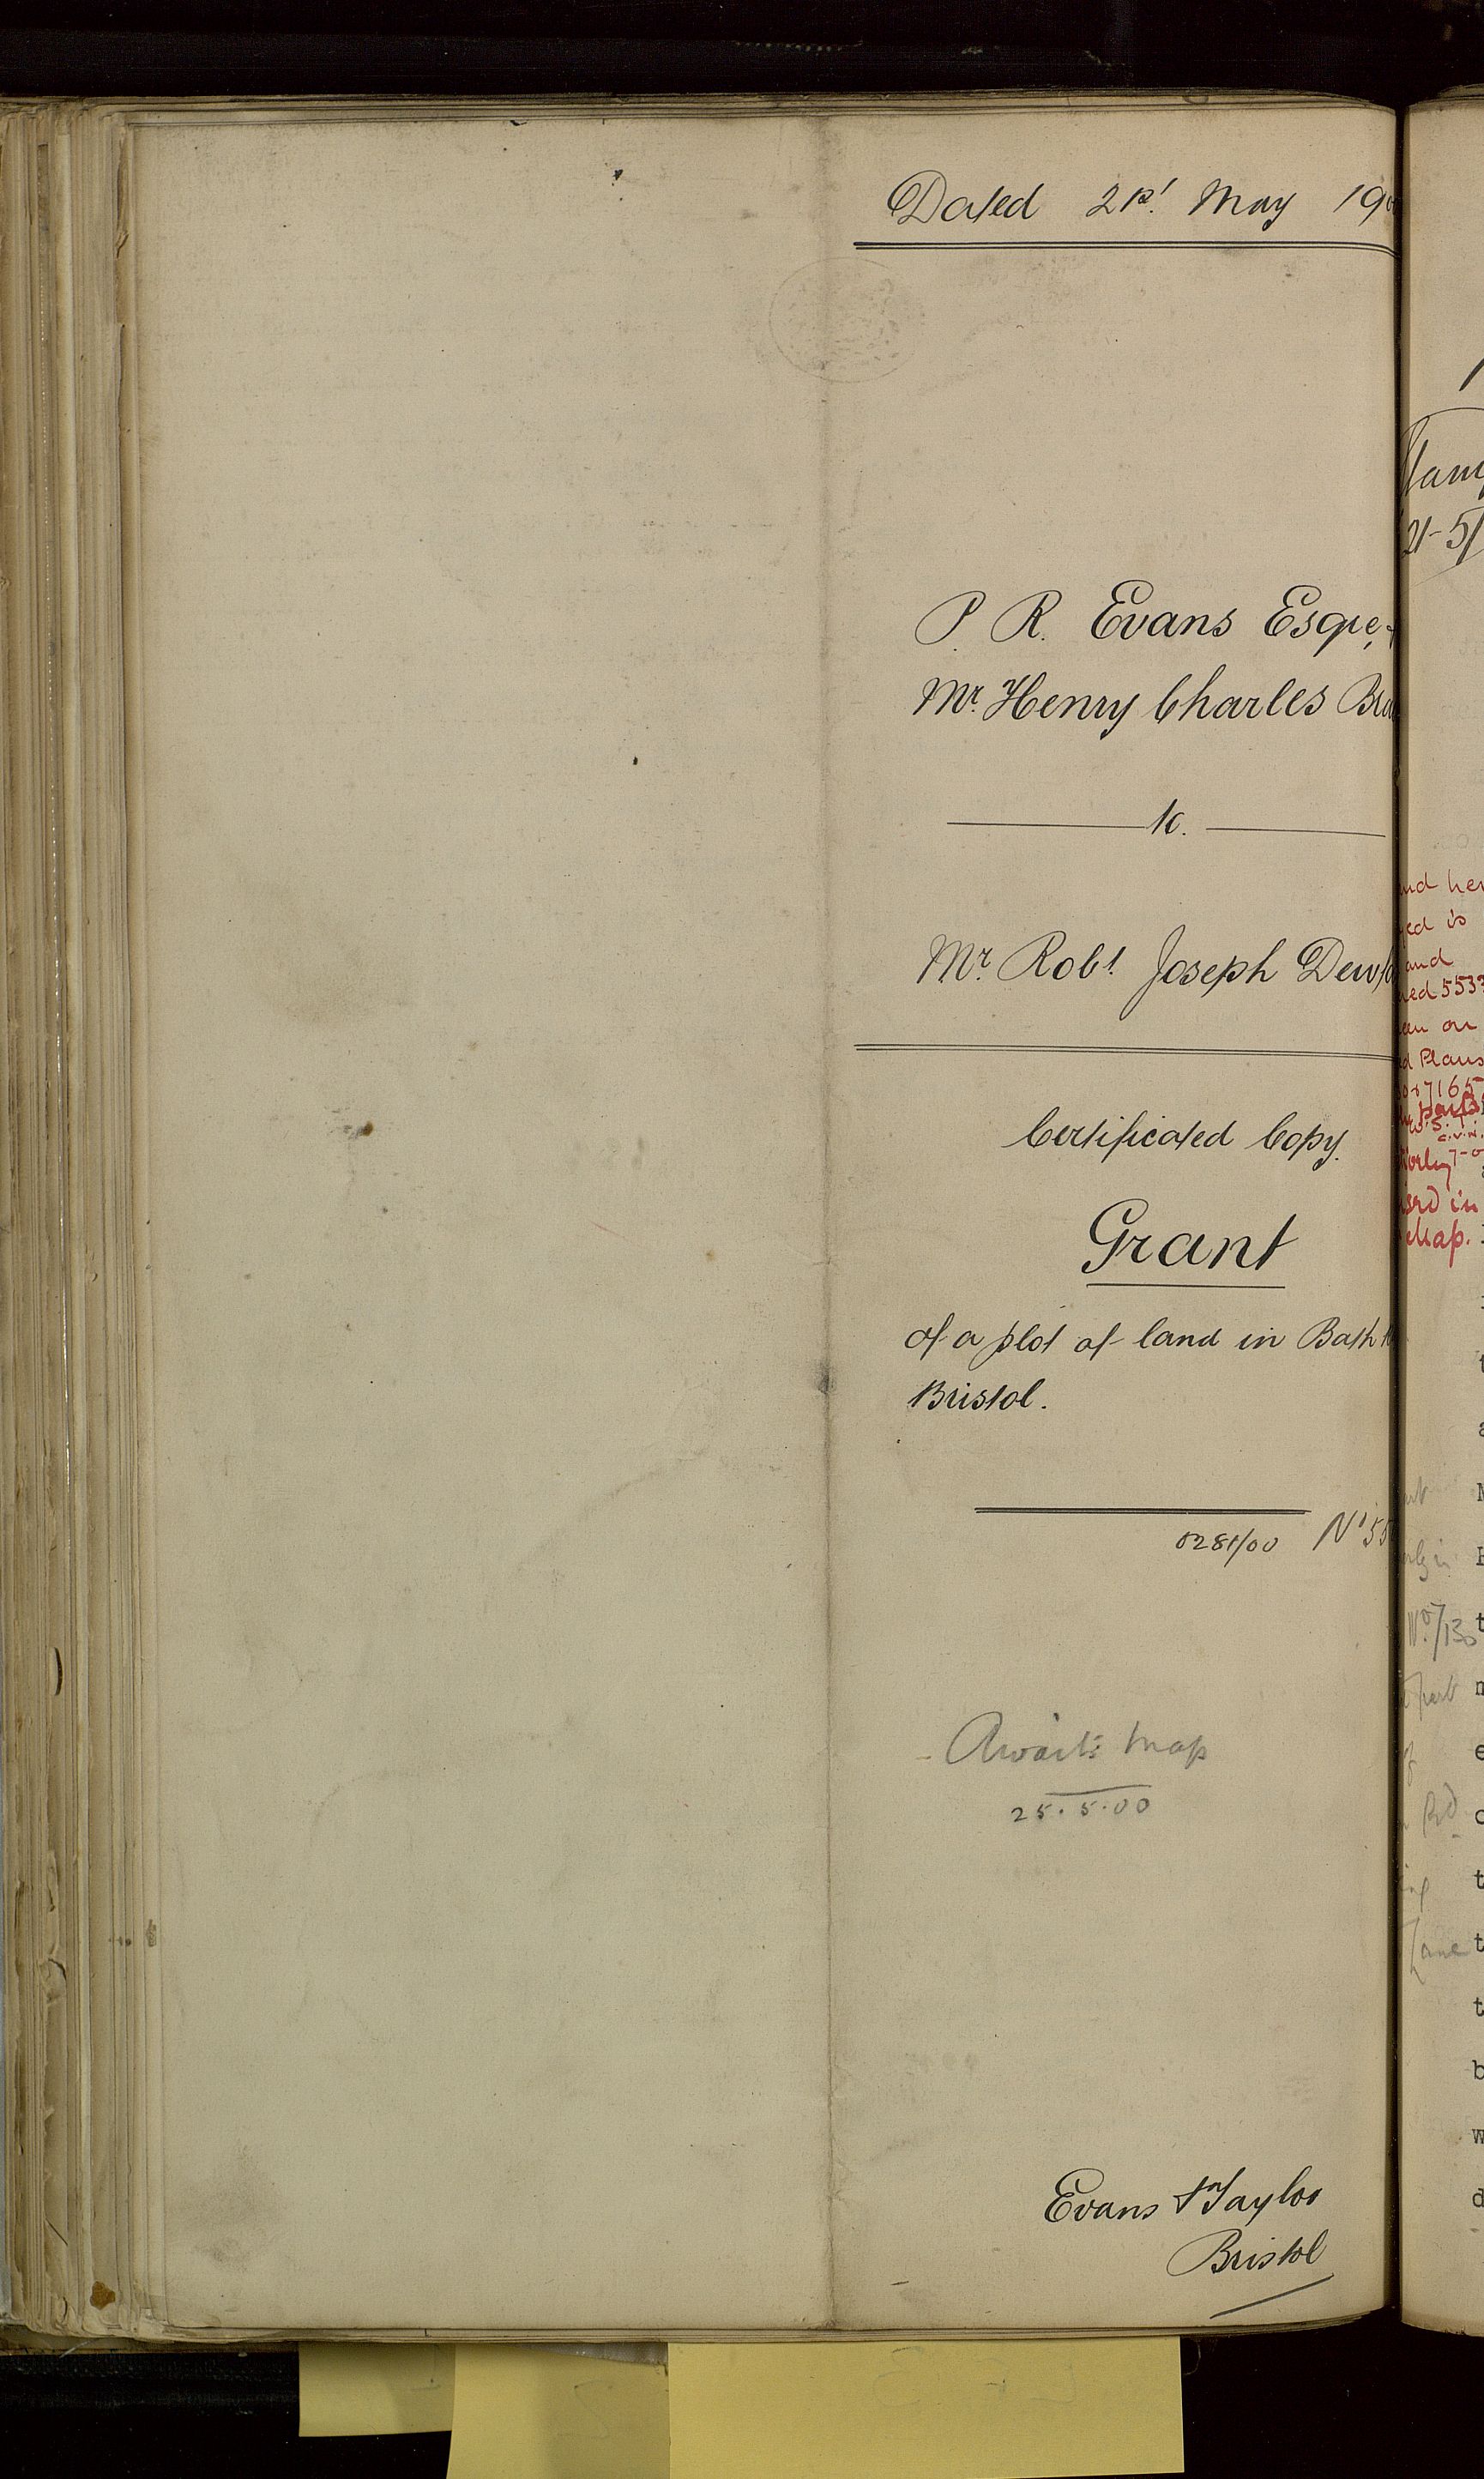 Dated 21st May 190
P. R. Evans Esqre,
Mr. Henry Charles Bra
to.
Mr. Robt. Joseph Dew
Certificated Copy.
Grant
of a plot of land in Bath
Bristol.
Nº 55
Await: map
25.5.00
Evans & Taylor
Bristol
21-5/
and her
ed is
and
ed 5533
on
d Plans
7165
in
Map.
Nº 7/130
part
Rd
Lane